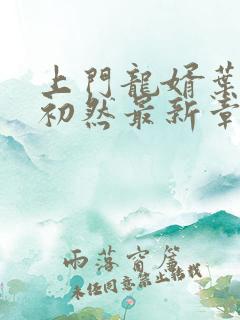 上門龍婿葉
初然最新章
雨落窗簾
未經同意禁止轉載